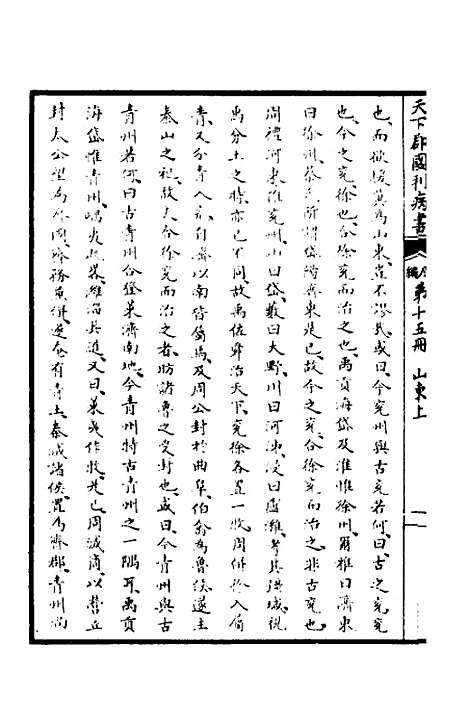 天下郡國利病書 編 第十五冊 山東上
也而欲援冀為山東豈不謬哉或曰今兗州與古兗若何曰古之兗兗
也今之兗徐也合徐兗而治之也禹貢海岱及淮惟徐州爾雅曰濟東
曰徐州蔡 所謂岱陽濟東是已故今之兗合徐兗而治之非古兗也
周禮河東惟兗州山曰岱藪曰大野川曰河泲浸曰盧濰考其疆域視
禹分土之時亦已不同故禹佐舜治天下兗徐各置一牧周併於入
青又分青入 自濟以南皆 焉及周公封於曲阜伯禽為魯侯遂主
泰山之祀故大合徐兗而治之者昉諸魯之受封也或曰今青州與古
青州若何曰古青州合登萊濟南地今青州特古青州之一隅耳禹貢
海岱惟青州嵎夷既畧濰淄其道又曰萊夷作牧是已周滅商以營丘
封太公望為 國濟務兼併遂 有青土秦滅諸侯置為齊郡青州尚